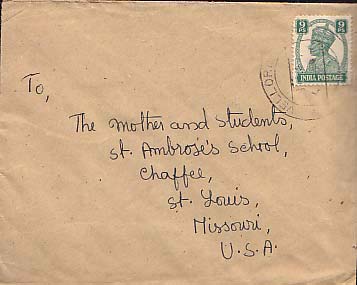 9 9
Ps Ps
INDIA POSTAGE
VELLORE
To,
The Mother and Students,
St. Ambrose's School,
Chaffee,
St. Louis,
Missouri,
U.S.A.